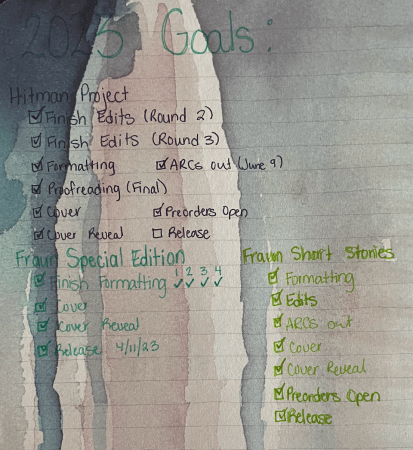 2025 Goals:
Hitman Project
Finish Edits (Round 2)
Finish Edits (Round 3)
Formatting ARCs out (June 9)
Proofreading (Final)
Cover Preorders Open
Cover Reveal Release
Fraun Special Edition
Finish Formatting 1 2 3 4
✓ ✓ ✓ ✓
Cover
Cover Reveal
Release 4/11/23
Fraun Short Stories
Formatting
Edits
ARCs out
Cover
Cover Reveal
Preorders Open
Release